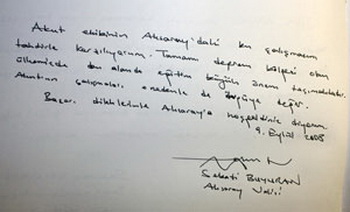 Akut ekibinin Aksaray'daki bu çalışmasını
takdirle karşılıyorum. Tamamı deprem bölgesi olan
ülkemizde bu alanda eğitim büyük önem taşımaktadır.
Akut'un çalışmaları o nedenle de övgüye değer.
Başarı dileklerimle Aksaray'a hoşgeldiniz diyorum.
9. Eylül 2008
Sebati BUYURAN
Aksaray Valisi